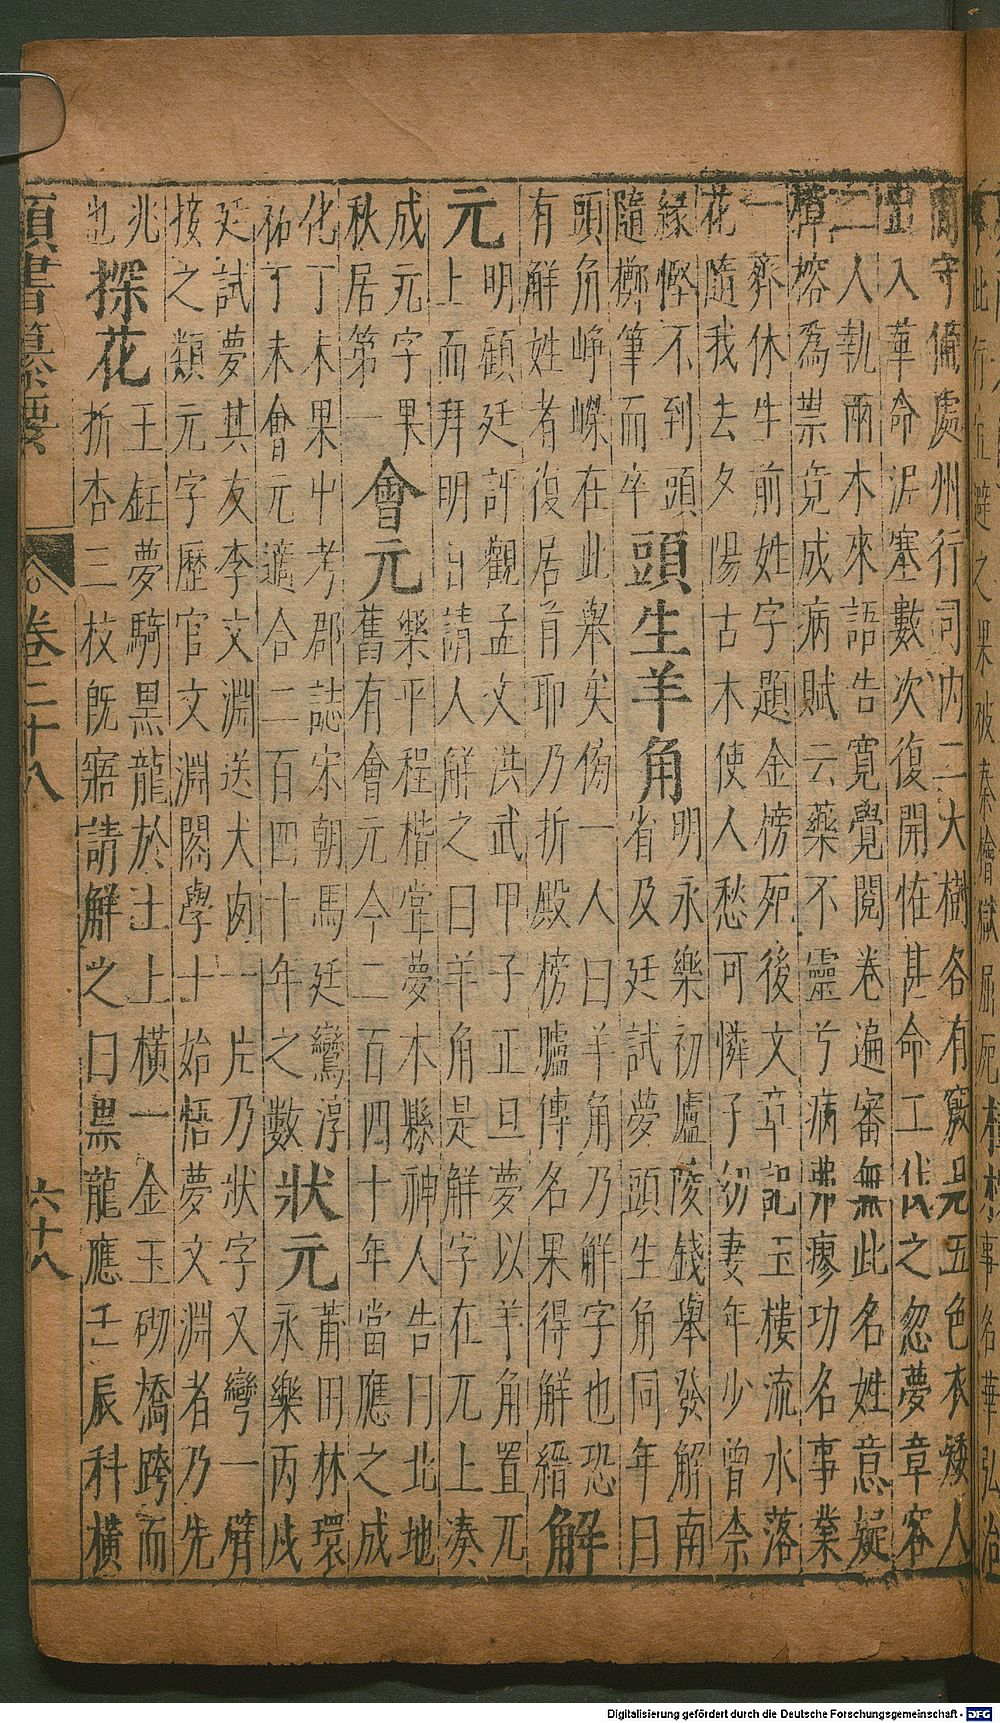 爾守備處州行司內二大樹各有竅見五色衣矮人
出入華命泥塞數次復開怪甚命工伐之忽夢章客
二人執兩木來語告寬覺閱卷遍審無此名姓意疑
樟榕為祟竟成病賦云藥不靈兮病弗瘳功名事業
一齊休生前姓字題金榜死後文章記玉樓流水落
花隨我去夕陽古木使人愁可憐子幼妻年少曾柰
緣慳不到頭
隨擲筆而卒
頭生羊角
明永樂初廬陵錢舉發解南
省及廷試夢頭生角同年曰
頭角崢嶸在此舉矣傍一人曰羊角乃解字也恐
有解姓者復居首耶乃折殿榜臚傳名果得解縉
解
元
明顧廷評觀孟文洪武甲子正旦夢以羊角置兀
上而拜明日請人解之曰羊角是解字在兀上湊
成元字果
秋居第一
會元
樂平程楷嘗夢本縣神人告曰北地
舊有會元今二百四十年當應之成
化丁未果中考郡誌宋朝馬廷鸞淳
祐丁未會元適合二百四十年之數
狀元
莆田林環
永樂丙戌
廷試夢其友李文淵送犬肉一片乃狀字又彎一臂
接之類元字歷官文淵閣學士始悟夢文淵者乃先
兆
也
探花
王鈺夢騎黑龍於土上橫一金玉砌橋跨而
折杏三枝旣寤請解之曰黑龍應壬辰科橫
類書纂要
卷二十八
六十八
Digitalisierung gefördert durch die Deutsche Forschungsgemeinschaft - DFG